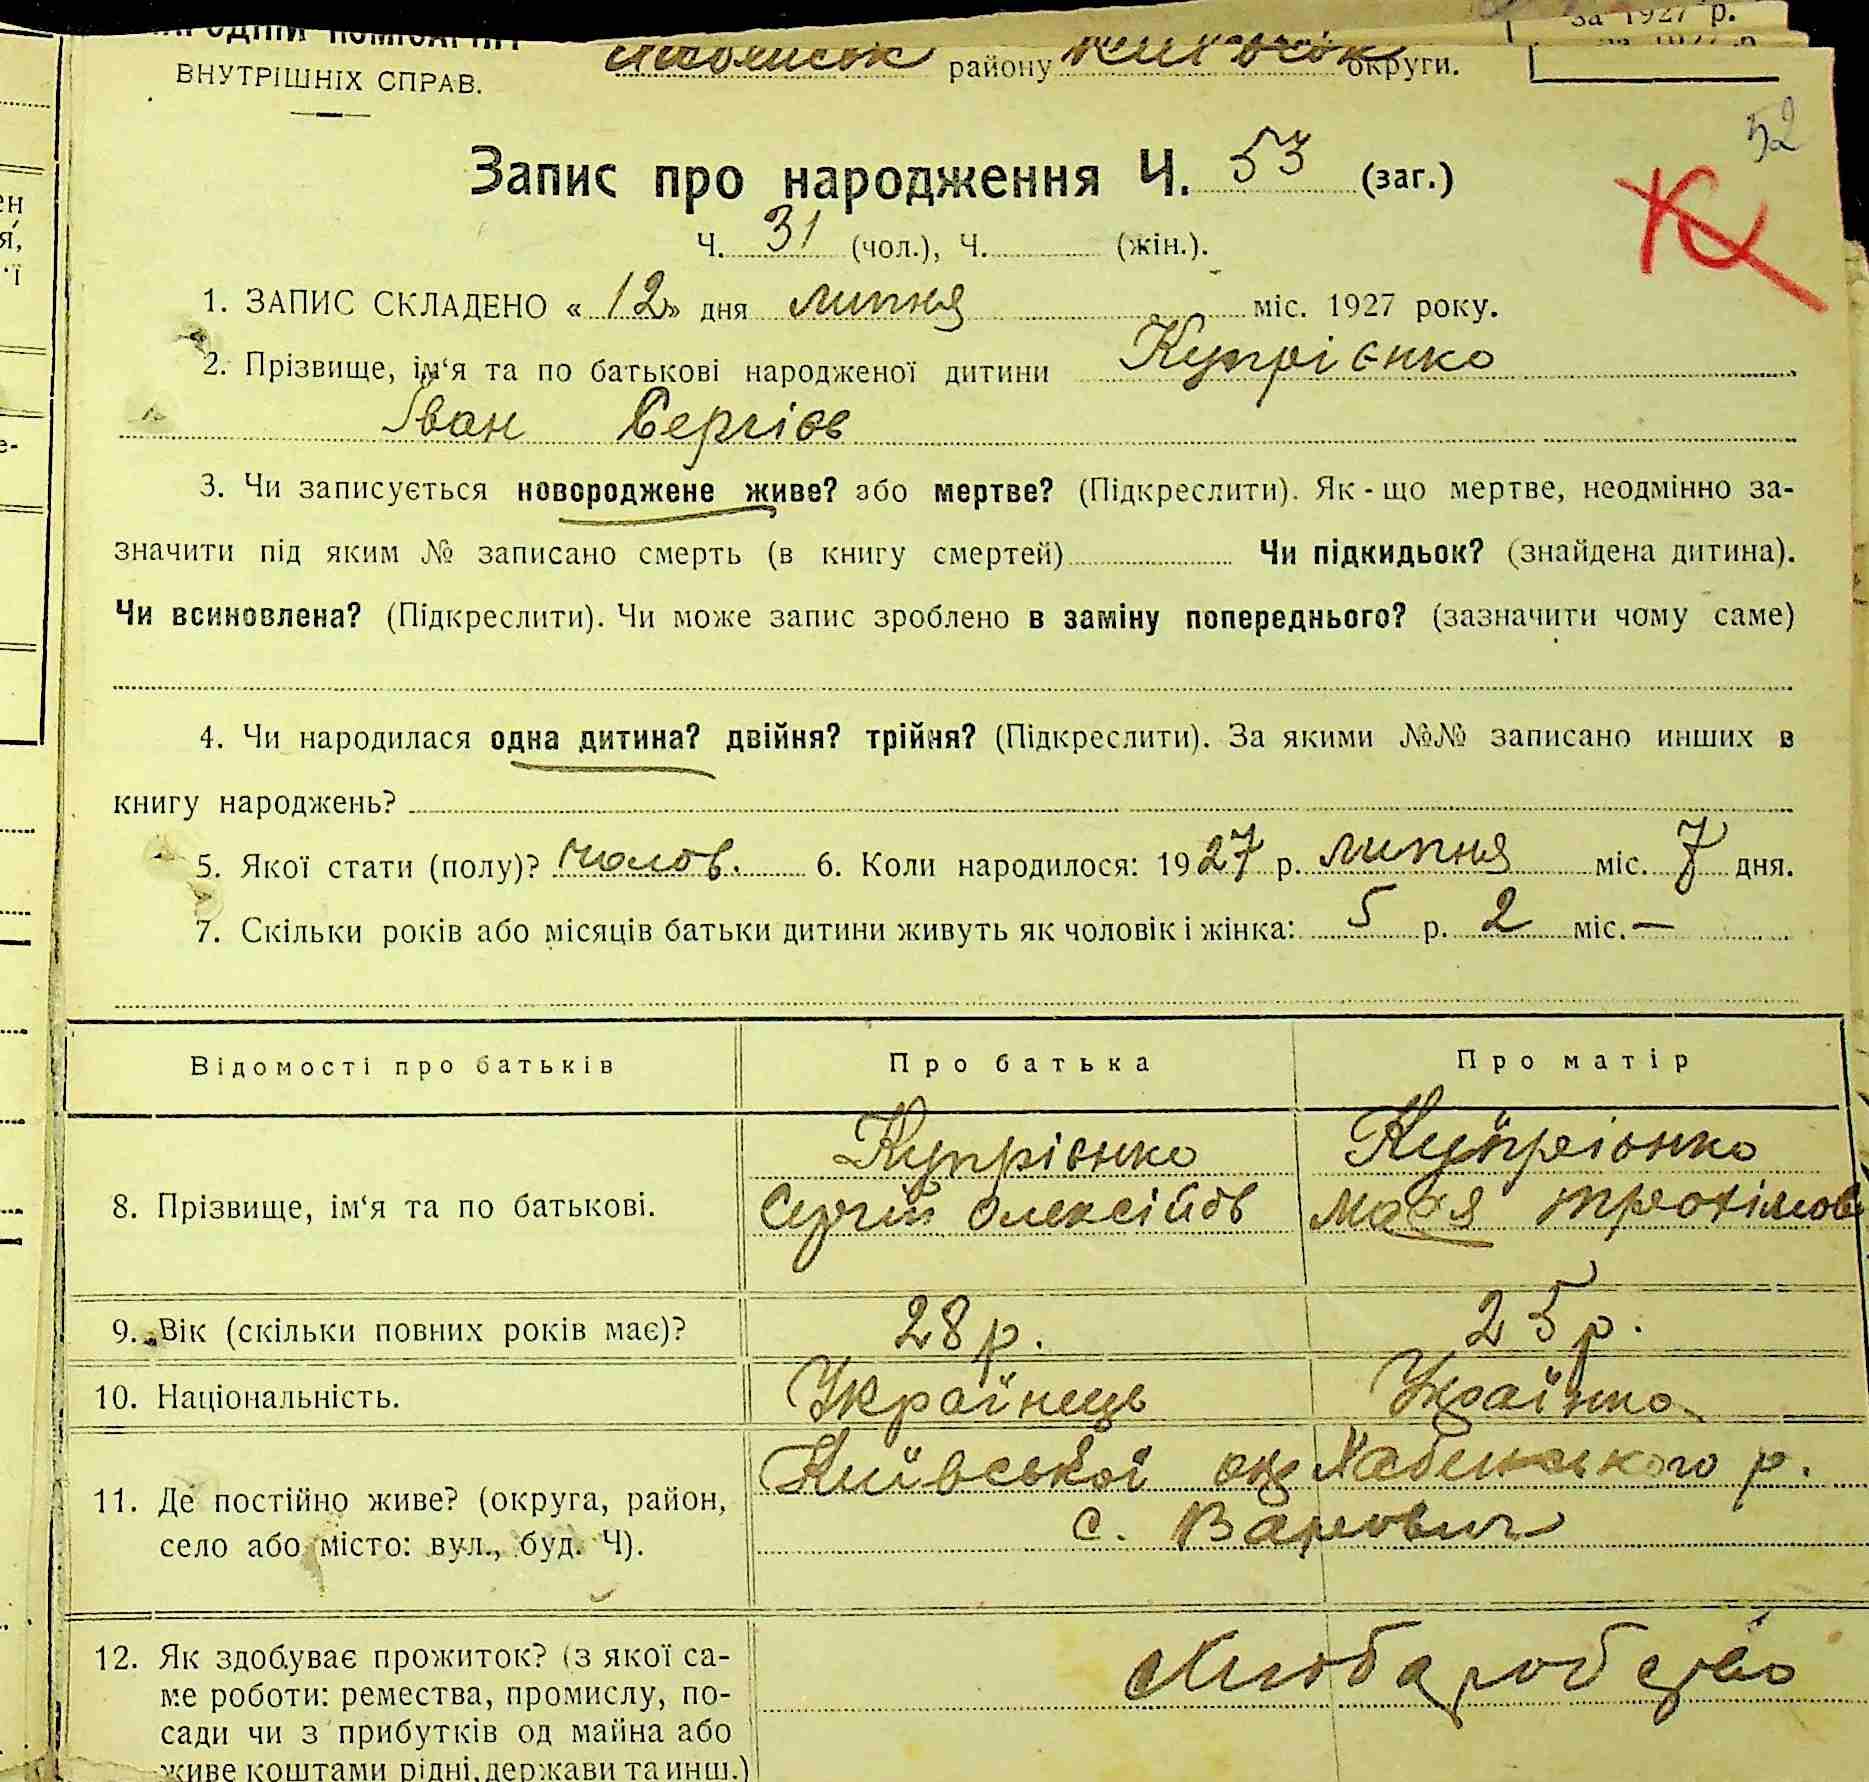 за 1927 р.
НАРОДНІЙ КОМІСАРІЯТ
ВНУТРІШНІХ СПРАВ.
району округи.
52
Запис про народження Ч. 53 (заг.)
Ч. 31 (чол.), Ч. (жін.).
1. ЗАПИС СКЛАДЕНО « 12 » дня липня міс. 1927 року.
2. Прізвище, ім‘я та по батькові народженої дитини Купрієнко
Іван Сергієв
3. Чи записується новороджене живе? або мертве? (Підкреслити). Як-що мертве, неодмінно за-
значити під яким № записано смерть (в книгу смертей) Чи підкидьок? (знайдена дитина).
Чи всиновлена? (Підкреслити). Чи може запис зроблено в заміну попереднього? (зазначити чому саме)
4. Чи народилася одна дитина? двійня? трійня? (Підкреслити). За якими №№ записано инших в
книгу народжень?
5. Якої стати (полу)? чолов. 6. Коли народилося: 1927 р. липня міс. 7 дня.
7. Скільки років або місяців батьки дитини живуть як чоловік і жінка: 5 р. 2 міс. —
Відомості про батьків Про батька Про матір
Купрієнко Купрієнко
8. Прізвище, ім‘я та по батькові. Сергій Олексійов Трохімов
9. Вік (скільки повних років має)? 28 р. 25 р.
10. Національність. Українець Українка
Київської ок Хабенського р.
11. Де постійно живе? (округа, район,
с. Варовичі
село або місто: вул., буд. Ч).
12. Як здобуває прожиток? (з якої са- Хліборобство
ме роботи: ремества, промислу, по-
сади чи з прибутків од майна або
живе коштами рідні, держави та инш.)